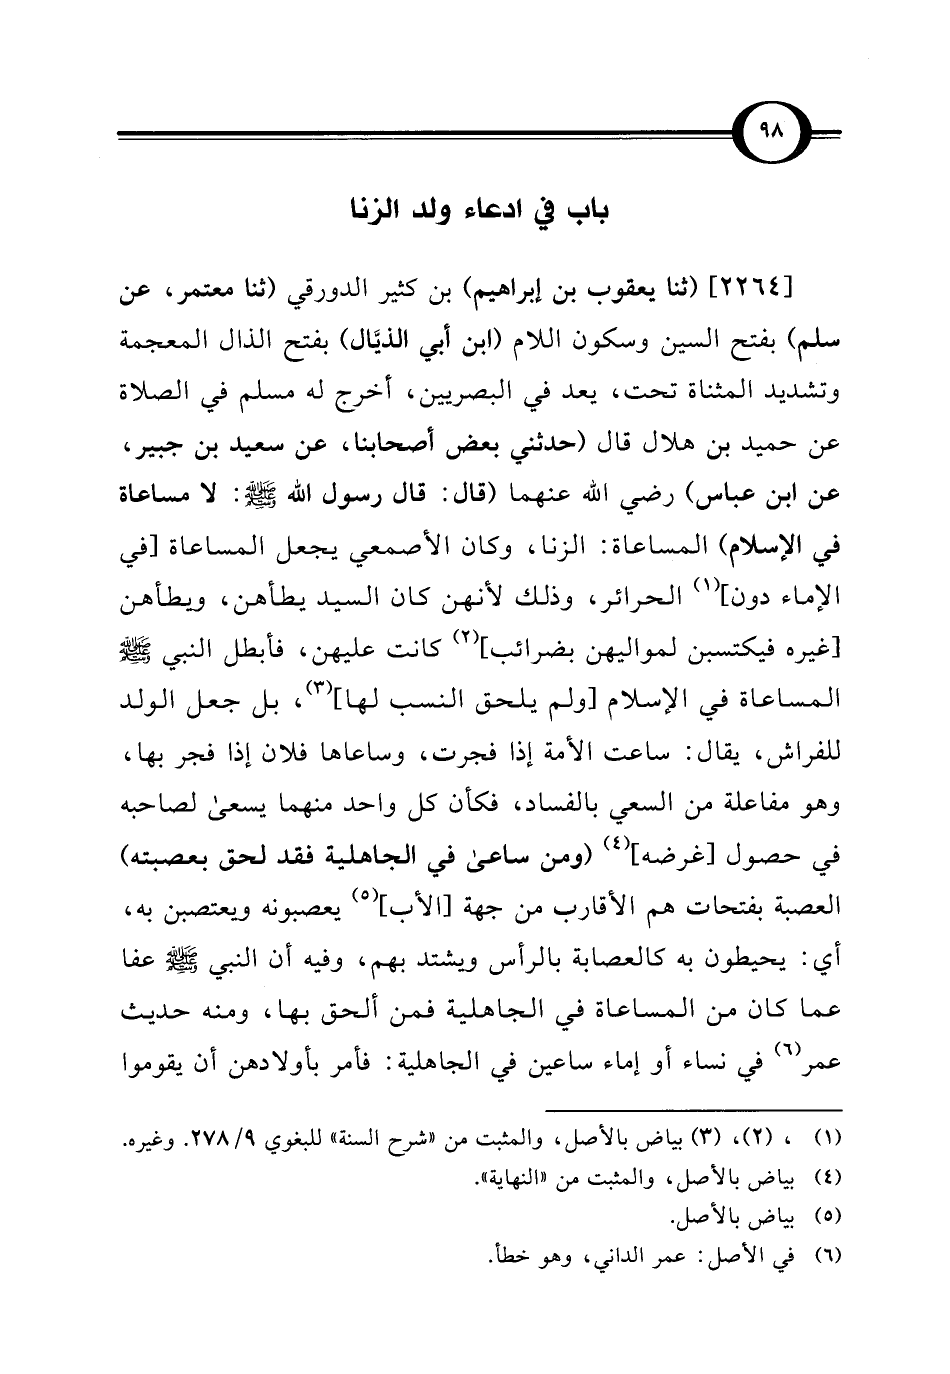 ٩٨
باب في ادعاء ولد الزنا
[٢٢٦٤] (ثنا يعقوب بن إبراهيم) بن كثير الدورقي (ثنا معتمر، عن
سلم) بفتح السين وسكون اللام (ابن أبي الذيَّال) بفتح الذال المعجمة
وتشديد المثناة تحت، يعد في البصريين، أخرج له مسلم في الصلاة
عن حميد بن هلال قال (حدثني بعض أصحابنا، عن سعيد بن جبير،
عن ابن عباس) رضي الله عنهما (قال: قال رسول الله ﷺ: لا مساعاة
في الإسلام) المساعاة: الزنا، وكان الأصمعي يجعل المساعاة [في
الإماء دون](١) الحرائر، وذلك لأنهن كان السيد يطأهن، ويطأهن
[غيره فيكتسبن لمواليهن بضرائب](٢) كانت عليهن، فأبطل النبي ﷺ
المساعاة في الإسلام [ولم يلحق النسب لها](٣)، بل جعل الولد
للفراش، يقال: ساعت الأمة إذا فجرت، وساعاها فلان إذا فجر بها،
وهو مفاعلة من السعي بالفساد، فكأن كل واحد منهما يسعىٰ لصاحبه
في حصول [غرضه](٤) (ومن ساعىٰ في الجاهلية فقد لحق بعصبته)
العصبة بفتحات هم الأقارب من جهة [الأب](٥) يعصبونه ويعتصبن به،
أي: يحيطون به كالعصابة بالرأس ويشتد بهم، وفيه أن النبي ﷺ عفا
عما كان من المساعاة في الجاهلية فمن ألحق بها، ومنه حديث
عمر(٦) في نساء أو إماء ساعين في الجاهلية: فأمر بأولادهن أن يقوموا
(١) ، (٢)، (٣) بياض بالأصل، والمثبت من «شرح السنة» للبغوي ٩/ ٢٧٨. وغيره.
(٤) بياض بالأصل، والمثبت من «النهاية».
(٥) بياض بالأصل.
(٦) في الأصل: عمر الداني، وهو خطأ.